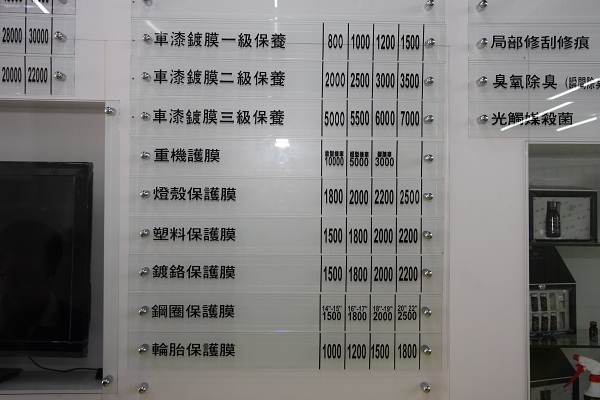 28000 30000
20000 22000
車漆鍍膜一級保養 800 1000 1200 1500
車漆鍍膜二級保養 2000 2500 3000 3500
車漆鍍膜三級保養 5000 5500 6000 7000
重機護膜 10000 5000 3000
燈殼保護膜 1800 2000 2200 2500
塑料保護膜 1500 1800 2000 2200
鍍鉻保護膜 1500 1800 2000 2200
鋼圈保護膜 14"-15" 1500 16"-17" 1800 18"-19" 2000 20" 22" 2500
輪胎保護膜 1000 1200 1500 1800
局部修刮修痕
臭氧除臭
光觸媒殺菌